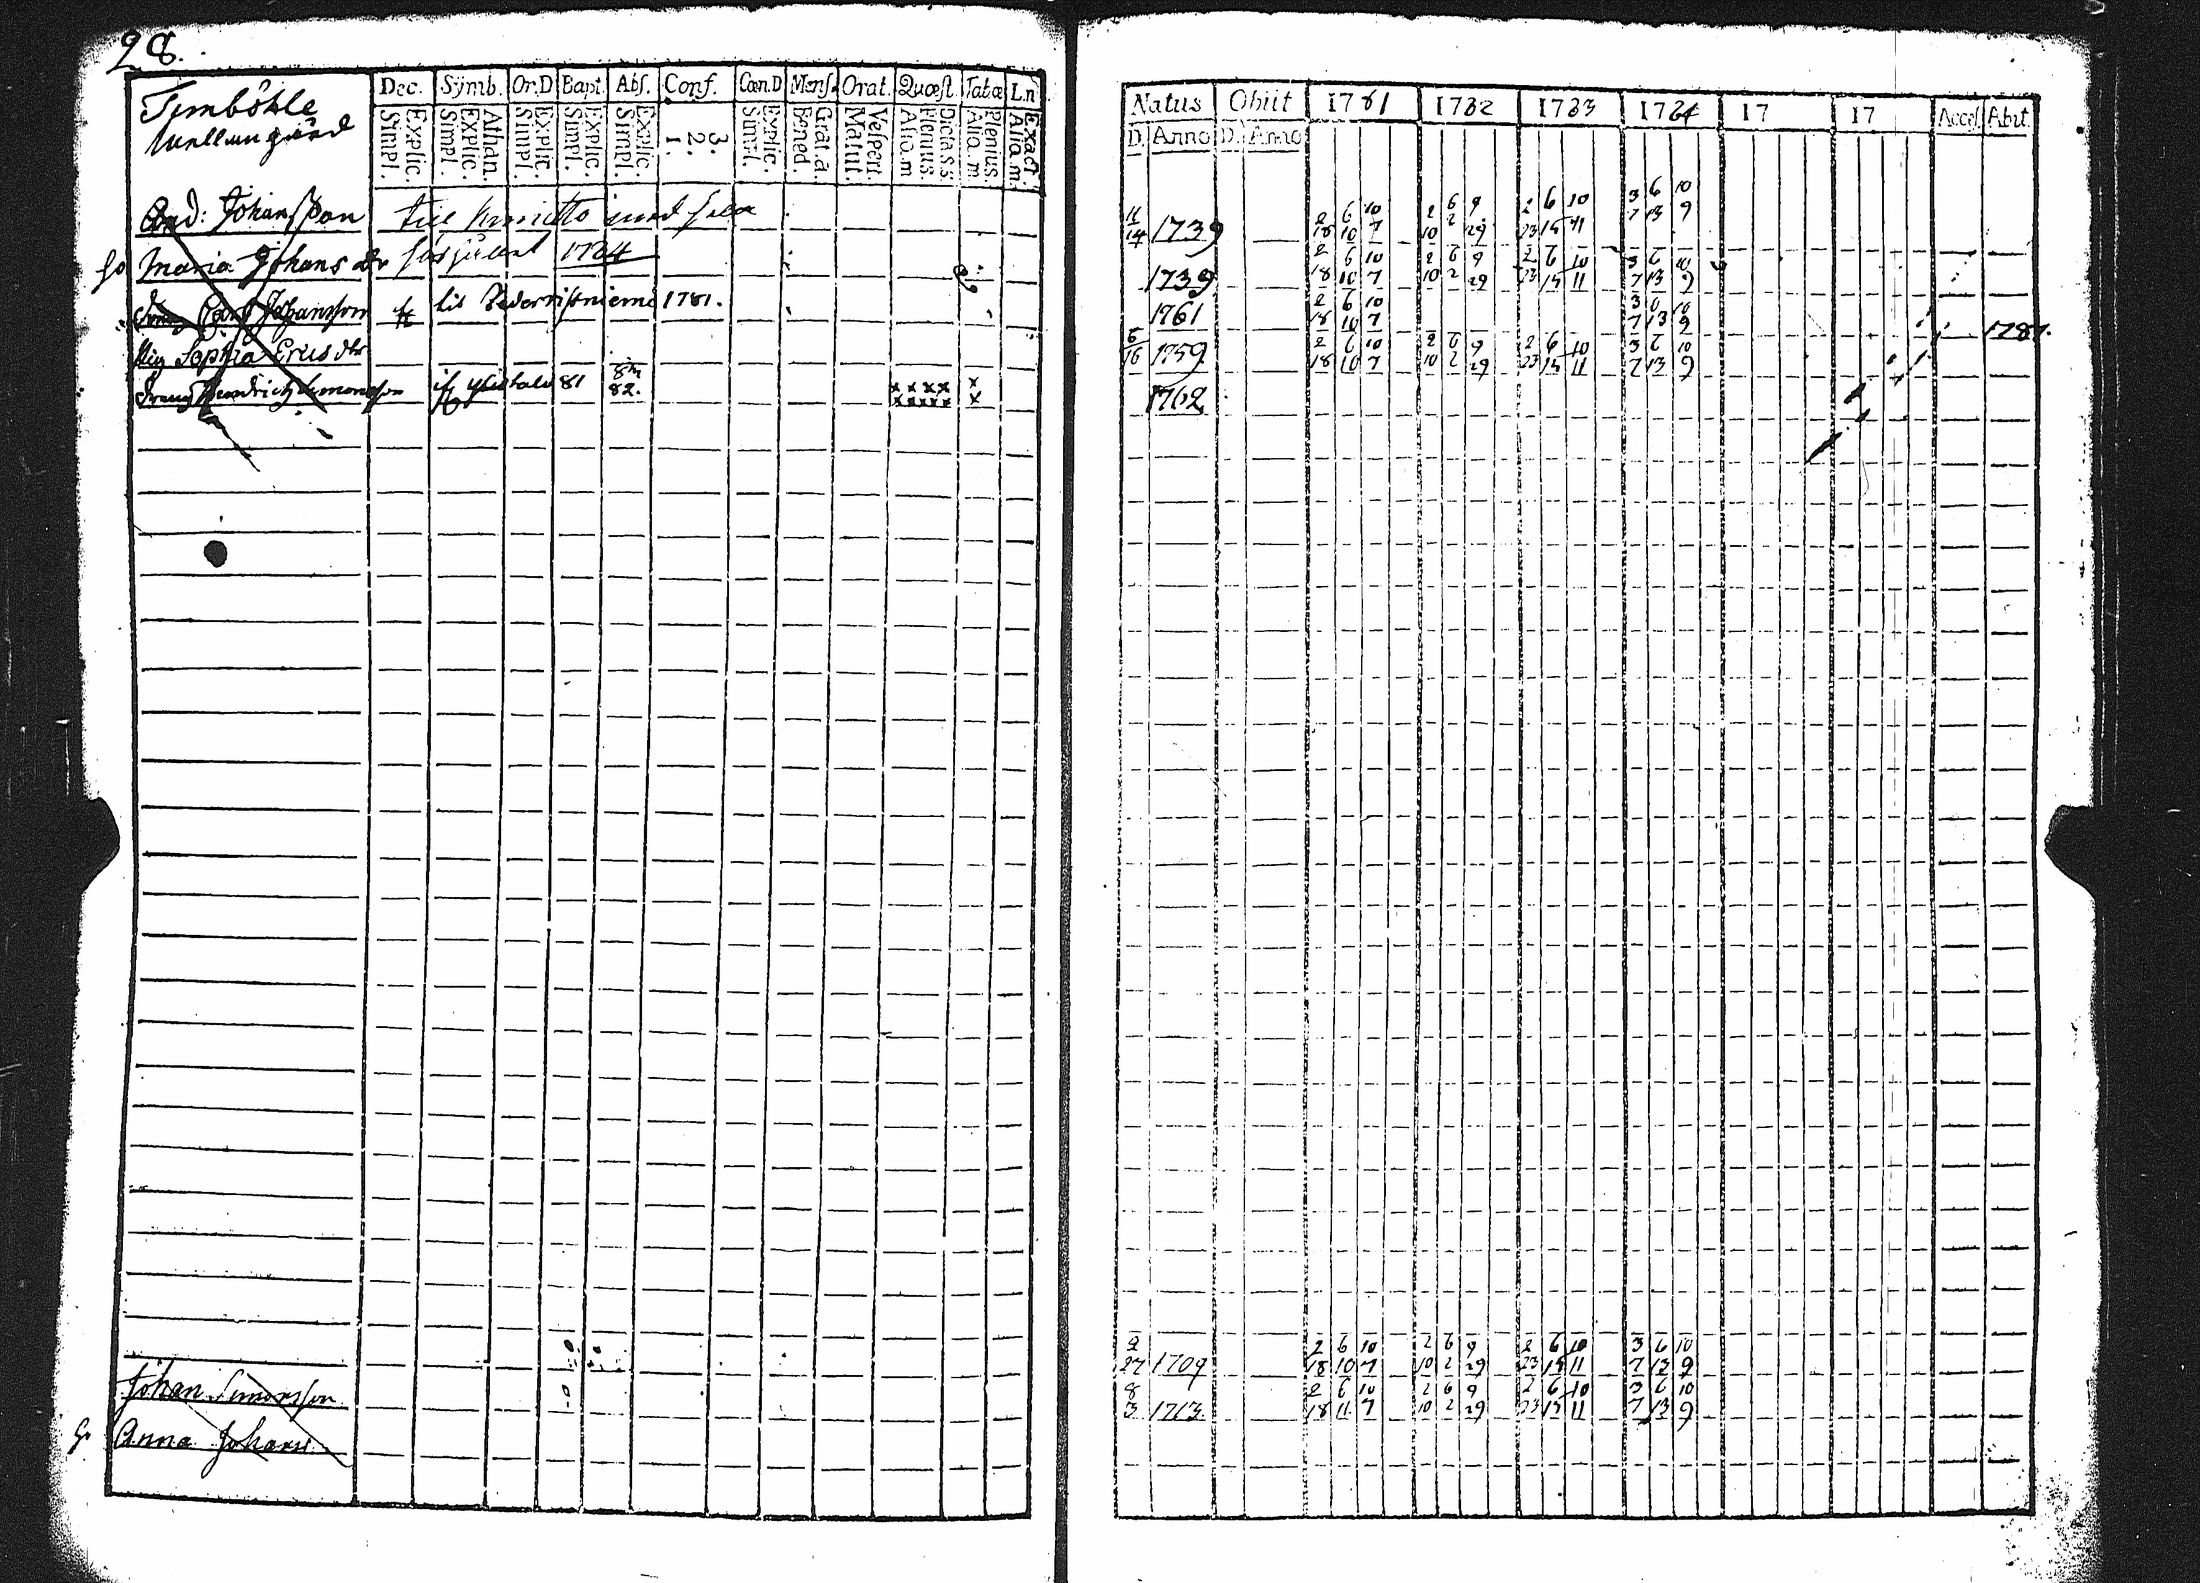 28.
Dec. Symb. Or.D Bapt. Abs. Conf. Cœn.D Mens. Orat. Quæst. Tabæ Ln
Explic. Simpl. Athan. Explic. Simpl. Explic. Simpl. Explic. Simpl. Explic. Simpl. 3. 2. 1. Explic. Simpl. Grat. a. Bened. Vespert. Matut. Dictas s. Plenius. Aliom Plenius. Alia. m. Exact. Alia. m.
Timböhle
Mellangård
And: Johansson
Maria Johans dr 1784
Johansson 1781.
Pig Sophia Erics dtr
Dreng Hendrich Simonsson 81 82.
x x x x x
x x x x x
Johan Simonsson
Anna Johans
Natus Obiit 1781 1782 1783 1784 17 17 Accel. Abit.
D. Anno D. Anno
11 14 1739 2 6 10 2 6 9 2 6 10 3 6 10
18 10 7 10 2 29 23 15 11 7 13 9
1739 2 6 10 2 6 9 2 6 10 3 6 10
18 10 7 10 2 29 23 15 11 7 13 9
1761 2 6 10 3 6 10
18 10 7 7 13 9 1781.
6 16 1759 2 6 10 2 6 9 2 6 10 3 6 10
18 10 7 10 2 29 23 15 11 7 13 9
1762
9 2 6 10 2 6 9 2 6 10 3 6 10
27 1709 18 10 7 10 2 29 23 15 11 7 13 9
8 2 6 10 2 6 9 2 6 10 3 6 10
3 1713 18 11 7 10 2 29 23 15 11 7 13 9